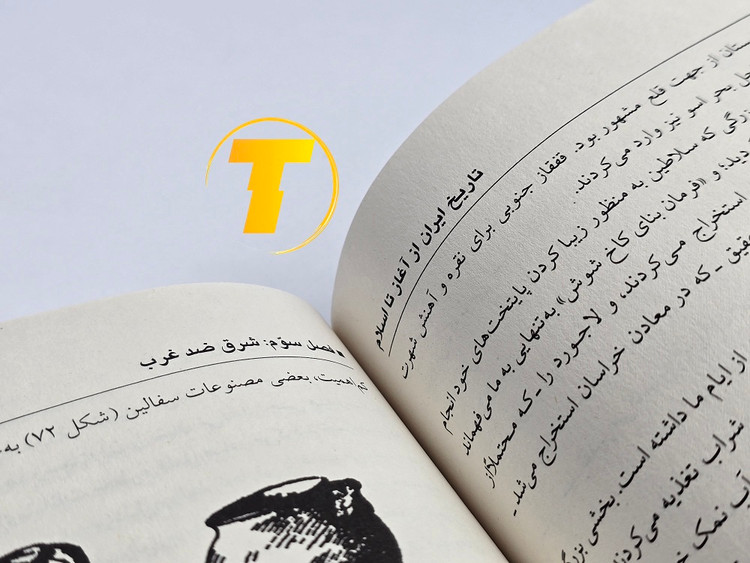 تاریخ ایران از آغاز تا اسلام
از جهت قلع مشهور بود. قفقاز جنوبی برای نقره و آهنش شهرت
بحر اسو نیز وارد می‌کردند.
که سلاطین به منظور زیبا کردن پایتخت‌های خود انجام
و «فرمان بنای کاخ شوش» به‌تنهایی به ما می‌فهماند
استخراج می‌کردند، و لاجورد را ـ که محتملاً از
ـ که در معادن خراسان استخراج می‌شد ـ
از ایام ما داشته است. بخشی
شراب تغذیه می‌کردند
نمک
فصل سوّم: شرق ضد غرب
اهمیت، بعضی مصنوعات سفالین (شکل ۷۲)
T